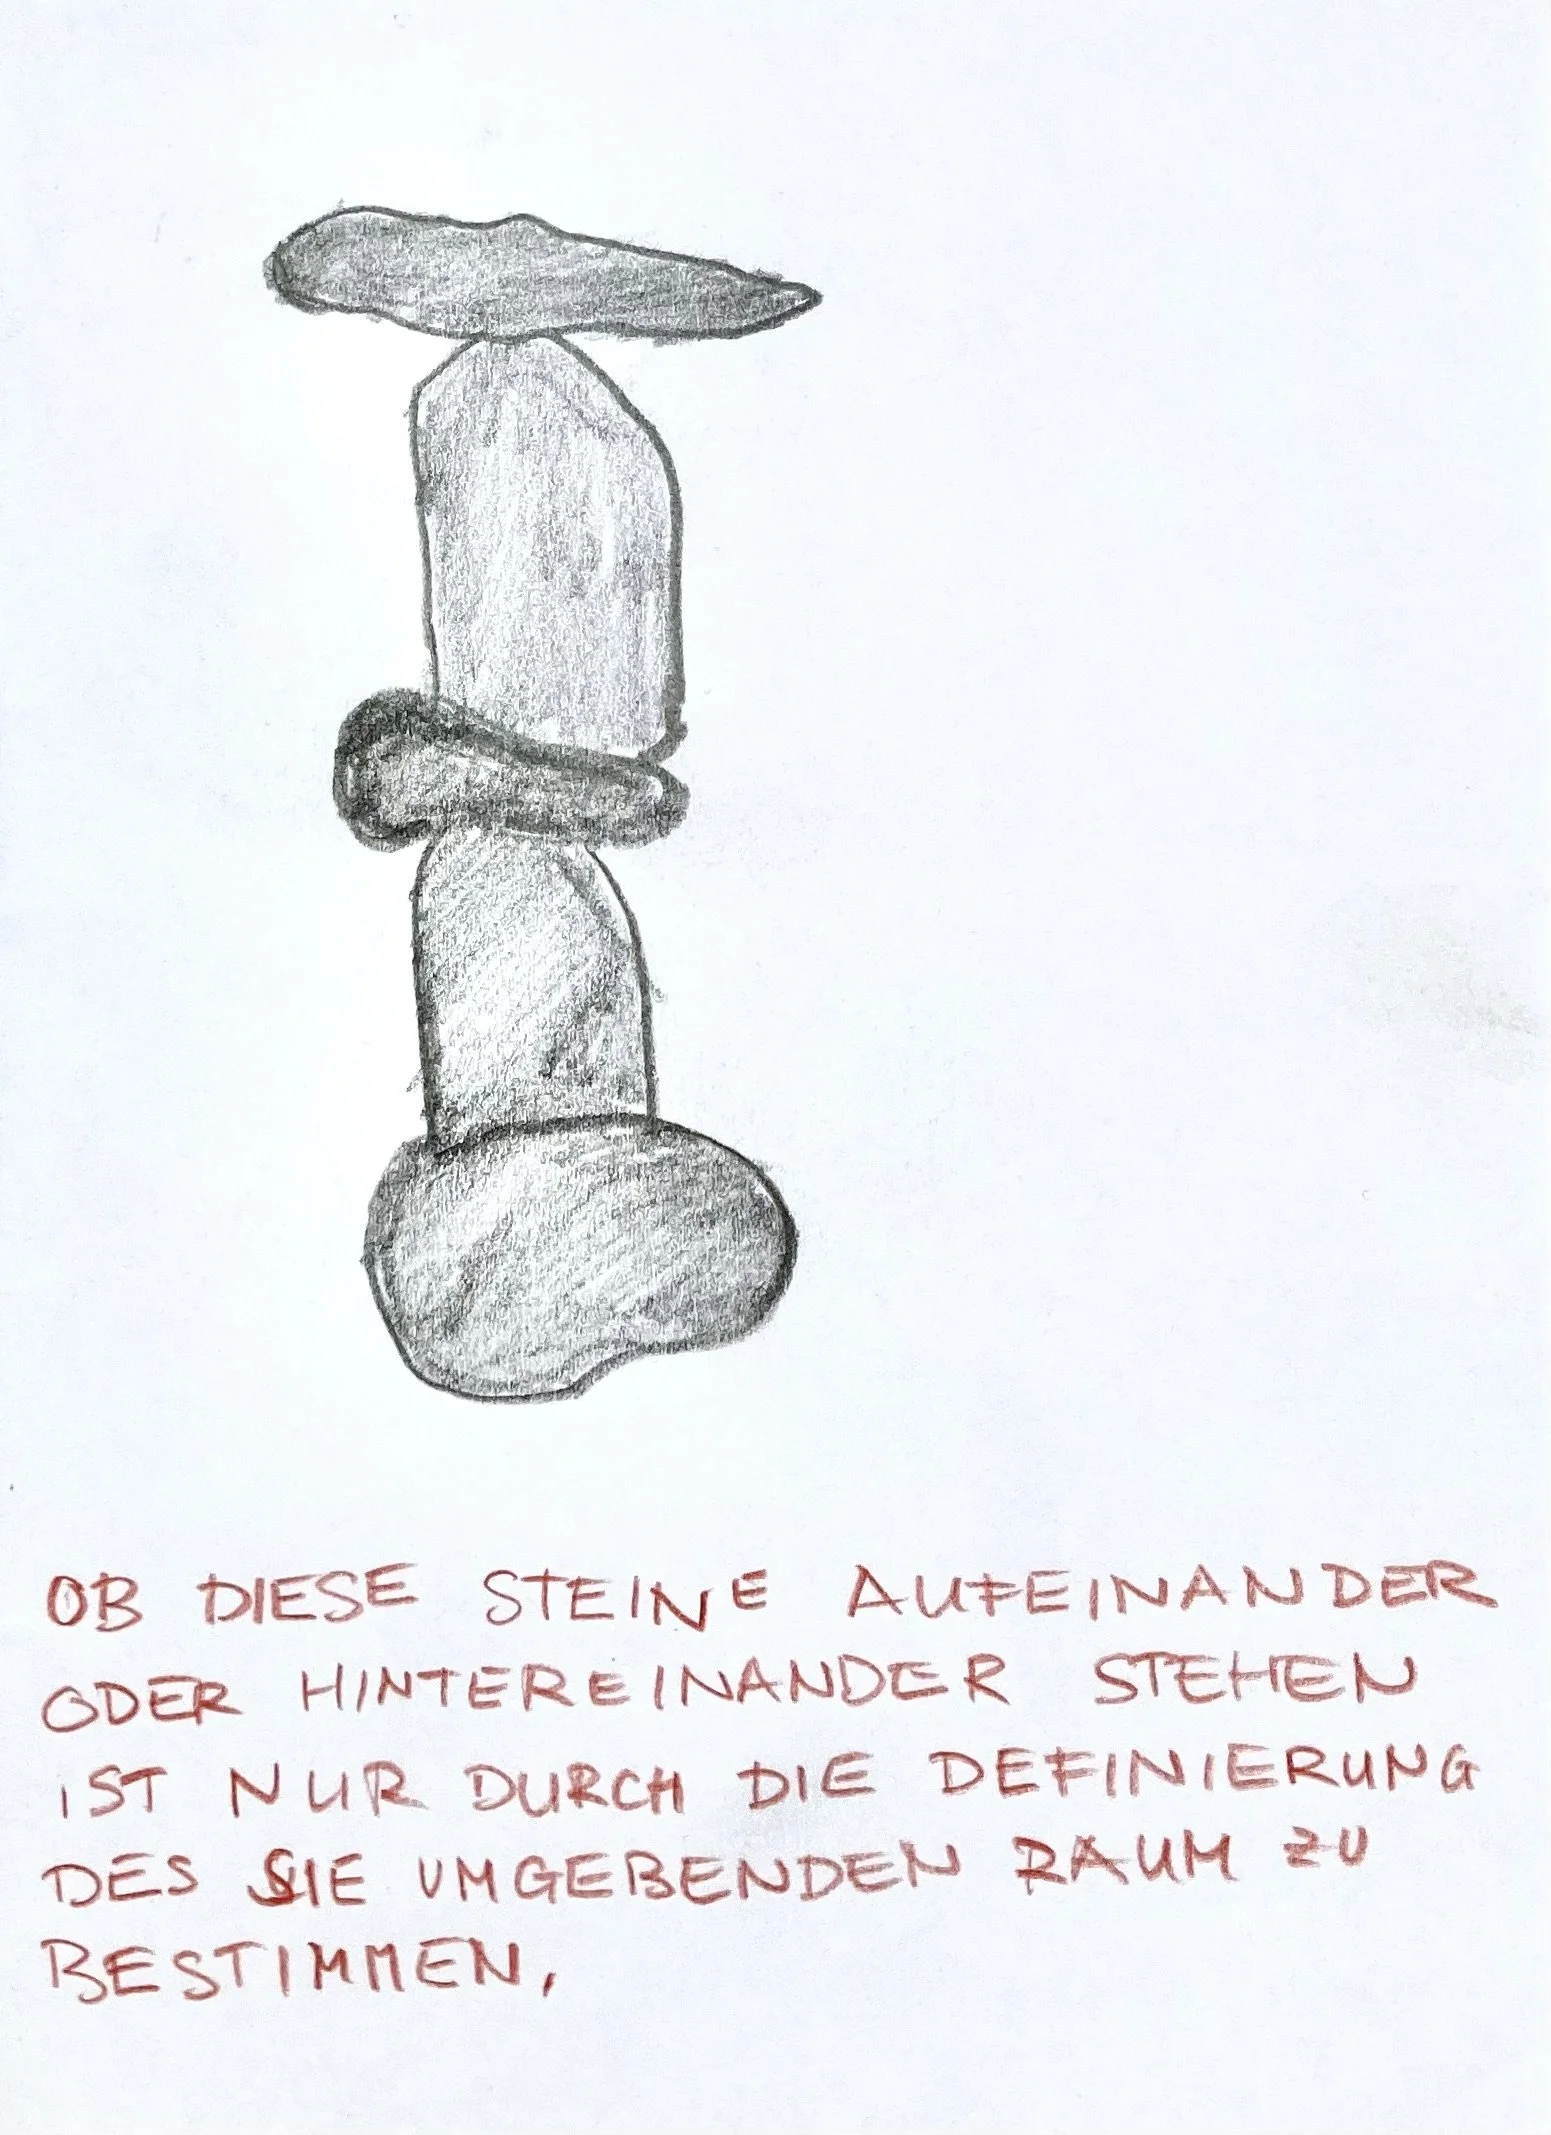 OB DIESE STEINE AUFEINANDER
ODER HINTEREINANDER STEHEN
IST NUR DURCH DIE DEFINIERUNG
DES SIE UMGEBENDEN RAUM ZU
BESTIMMEN,